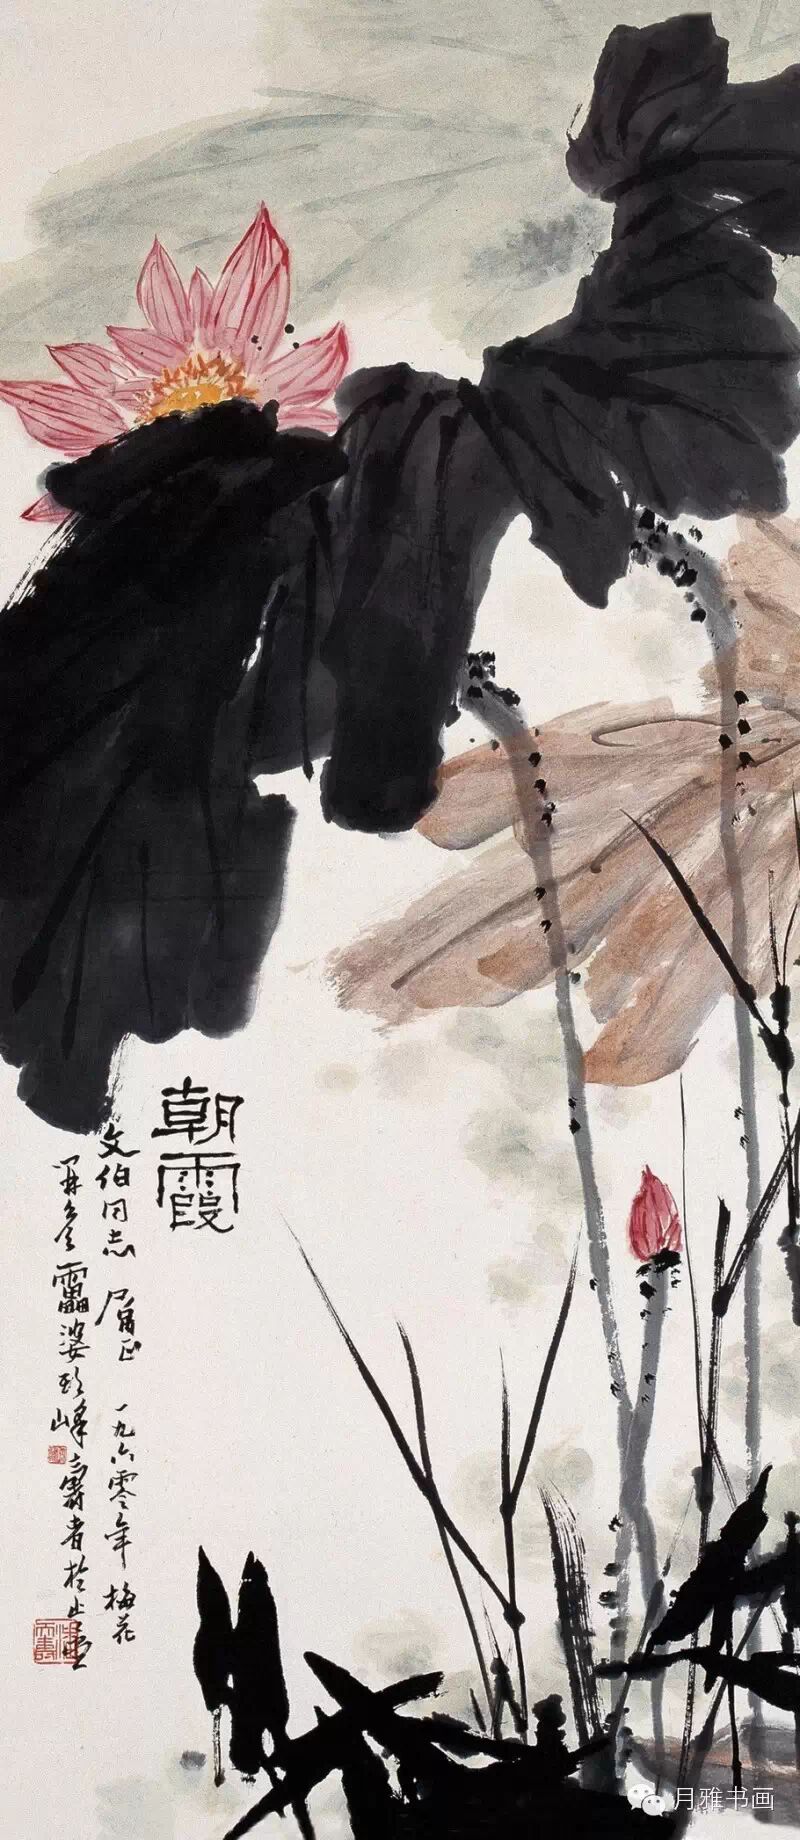 朝霞
文伯同志 属正 一九六零年 梅花
开候 雷婆头峰寿者于止
月雅书画